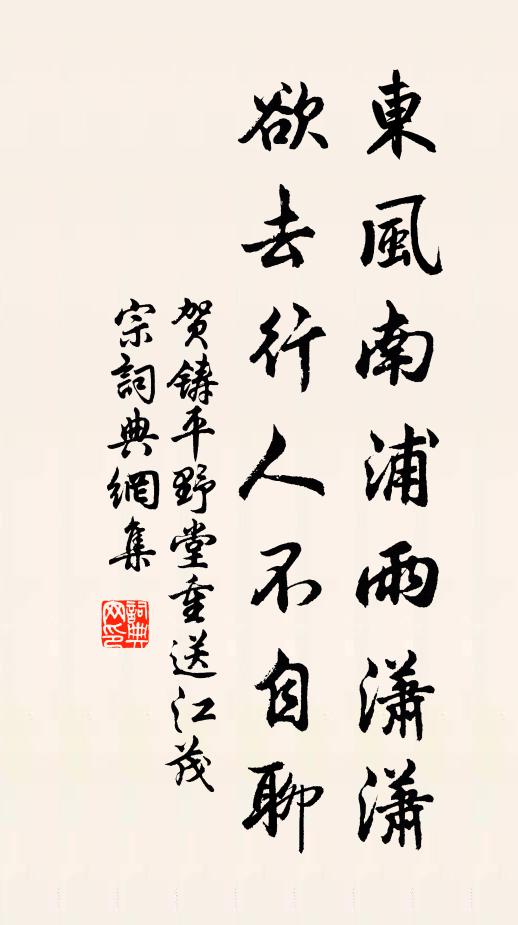 東風南浦雨瀟瀟
欲去行人不自聊
贺鑄平野堂重送江茂
宗詞典網集
詞典网印